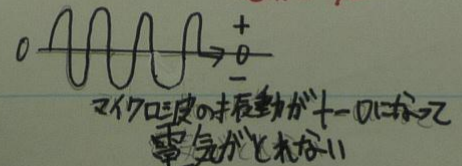 +
0 0
-
マイクロ波の振動が+-0になって
電気がとれない